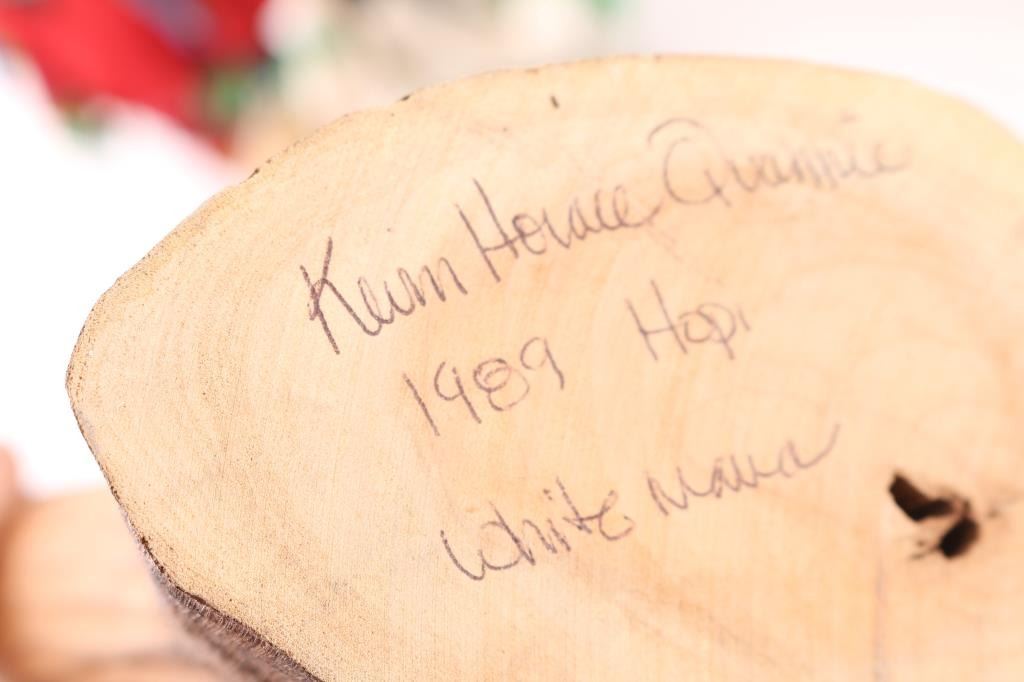 Kevin Horace Quannie
1989 Hopi
White Mana